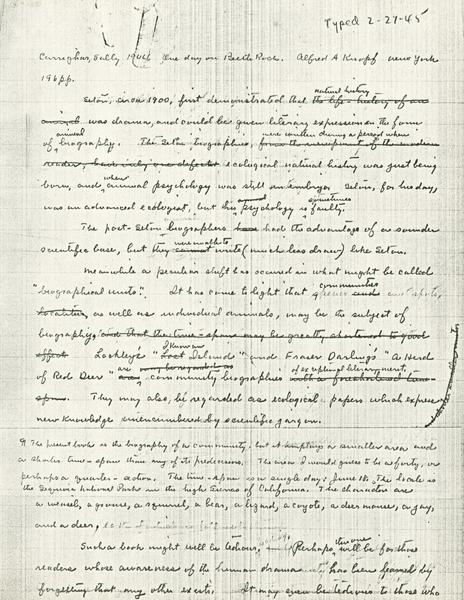 Typed 2-27-45
Carrighar, Sally 1944 One day on Beetle Rock. Alfred A Knopf New York
196 pp.
natural history
Seton, circa 1900, first demonstrated that the life-history of an
animal was drama, and could be given literary expression in the form
animal were written during a period when
of biography. The Seton biographies, ecological natural history was just being
when
born, and animal psychology was still an embryo. Seton, for his day,
animal sometimes
was an advanced ecologist, but his psychology is faulty.
The post-Seton biographers have had the advantage of a sounder
were unable to
scientific base, but they cannot write (much less draw) like Seton.
Meanwhile a peculiar shift has occured in what might be called
communities
"biographical units". It has come to light that species and spots,
localities, as well as individual animals, may be the subject of
biography, and that the time-span may be greatly shortened to good
I Know an
effect. Lockley's "Island" and Fraser Darling's "A Herd
are of exceptional literary merit.
of Red Deer" community biographies with a foreshortened time-
span. They may also be regarded as ecological papers which express
new knowledge unencumbered by scientific jargon.
¶ The present book is the biography of a community, but it employs a smaller area and
a shorter time-span than any of its predecessors. The area I would guess to be a forty, or
perhaps a quarter-section. The time-span is a single day: June 18. The locale is
the Sequoia National Park in the high Sierras of California. The characters are
a weasel, a grouse, a squirrel, a bear, a lizard, a coyote, a deer mouse, a jay,
and a deer,
Such a book might well be tedious, Perhaps will be for those
readers whose awareness of the human drama has been formed by
forgetting that any other exists. It may even be tedious to those who